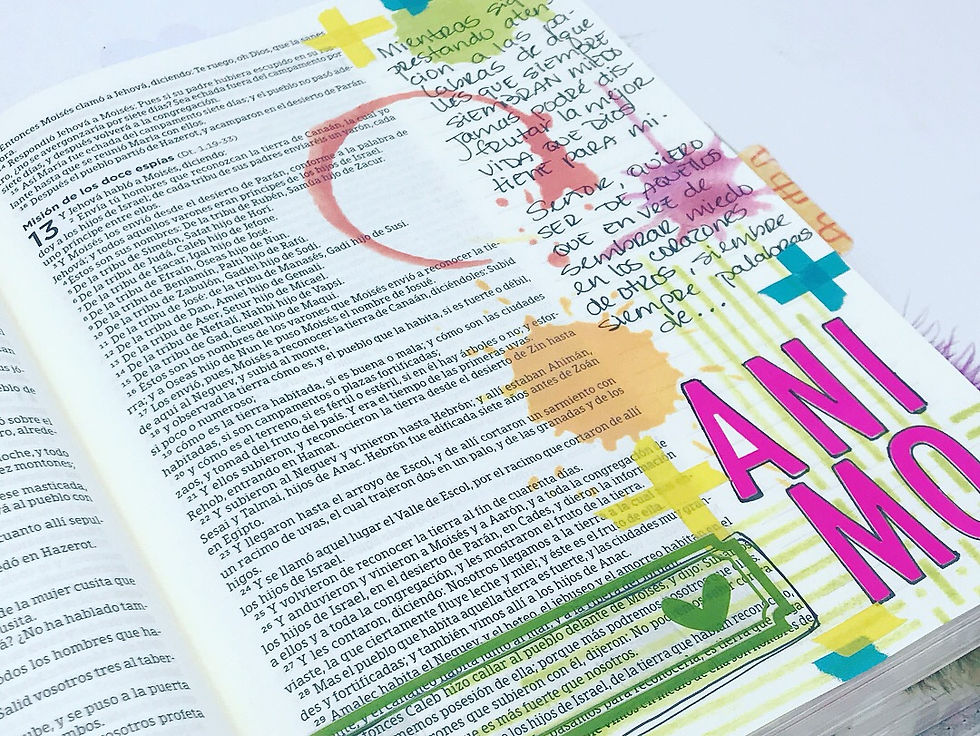 ntonces Moisés clamó a Jehová, diciendo: Te ruego, oh Dios, que la sanes
Respondió Jehová a Moisés: Pues si su padre hubiera escupido en su
se avergonzaría por siete días? Sea echada fuera del campamento por
siete días, y después volverá a la congregación.
echada del campamento siete días; y el pueblo no pasó ade-
lante hasta que se reunió María con ellos.
16 Después el pueblo partió de Hazerot, y acamparon en el desierto de Parán
Misión de los doce espías (Dt. 1.19-33)
13 Y Jehová habló a Moisés, diciendo:
2 Envía tú hombres que reconozcan la tierra de Canaán, la cual yo
doy a los hijos de Israel; de cada tribu de sus padres enviaréis un varón, cada
uno príncipe entre ellos.
3 Y Moisés los envió desde el desierto de Parán, conforme a la palabra de
Jehová; y todos aquellos varones eran príncipes de los hijos de Israel.
4 Estos son sus nombres: De la tribu de Rubén, Samúa hijo de Zacur.
5 De la tribu de Simeón, Safat hijo de Hori.
6 De la tribu de Judá, Caleb hijo de Jefone.
7 De la tribu de Isacar, Igal hijo de José.
8 De la tribu de Efraín, Oseas hijo de Nun.
9 De la tribu de Benjamín, Palti hijo de Rafú.
10 De la tribu de Zabulón, Gadiel hijo de Sodi.
11 De la tribu de José: de la tribu de Manasés, Gadi hijo de Susi.
12 De la tribu de Dan, Amiel hijo de Gemali.
13 De la tribu de Aser, Setur hijo de Micael.
14 De la tribu de Neftalí, Nahbi hijo de Vapsi.
15 De la tribu de Gad, Geuel hijo de Maqui.
16 Estos son los nombres de los varones que Moisés envió a reconocer la tie-
rra; y a Oseas hijo de Nun le puso Moisés el nombre de Josué.
17 Los envió, pues, Moisés a reconocer la tierra de Canaán, diciéndoles: Subid
de aquí al Neguev, y subid al monte,
18 y observad la tierra cómo es, y el pueblo que la habita, si es fuerte o débil,
si poco o numeroso;
19 cómo es la tierra habitada, si es buena o mala; y cómo son las ciudades
habitadas, si son campamentos o plazas fortificadas;
20 y cómo es el terreno, si es fértil o estéril, si en él hay árboles o no; y esfor-
zaos, y tomad del fruto del país. Y era el tiempo de las primeras uvas.
21 Y ellos subieron, y reconocieron la tierra desde el desierto de Zin hasta
Rehob, entrando en Hamat.
22 Y subieron al Neguev y vinieron hasta Hebrón; y allí estaban Ahimán,
Sesai y Talmai, hijos de Anac. Hebrón fue edificada siete años antes de Zoán
en Egipto.
23 Y llegaron hasta el arroyo de Escol, y de allí cortaron un sarmiento con
un racimo de uvas, el cual trajeron dos en un palo, y de las granadas y de los
higos.
24 Y se llamó aquel lugar el Valle de Escol, por el racimo que cortaron de allí
los hijos de Israel.
25 Y volvieron de reconocer la tierra al fin de cuarenta días.
26 Y anduvieron y vinieron a Moisés y a Aarón, y a toda la congregación de
los hijos de Israel, en el desierto de Parán, en Cades, y dieron la información
a ellos y a toda la congregación, y les mostraron el fruto de la tierra.
27 Y les contaron, diciendo: Nosotros llegamos a la tierra a la cual nos en-
viaste, la que ciertamente fluye leche y miel; y éste es el fruto de ella.
28 Mas el pueblo que habita aquella tierra es fuerte, y las ciudades muy gran-
des y fortificadas; y también vimos allí a los hijos de Anac.
29 Amalec habita el Neguev, y el heteo, el jebuseo y el amorreo habitan en el
Caleb hizo callar al pueblo delante de Moisés, y dijo:
posesión de ella; porque más podremos nosotros
que subieron con él, dijeron: No
es más fuerte que nosotros.
los hijos de Israel, de la tierra que habían recono-
Mientras sig
prestando aten
ción a las pa-
labras de aque
llos que siempre
siembran miedo
jamás podré dis-
frutar la mejor
vida que Dios
tiene para mi.
Señor, quiero
ser de aquellos
que en vez de
sembrar miedo
en los corazones
de otros, siempre
siempre palabras
de...
ANI
MO
sobre el
alrede-
oche, y todo
ez montones;
ese masticada,
vá al pueblo con
cuanto allí sepul-
dó en Hazerot.
de la mujer cusita que
usita.
á? ¿No ha hablado tam-
odos los hombres que ha-
Salid vosotros tres al taber-
ube, y se puso a la puerta
mbos.
vosotros profeta